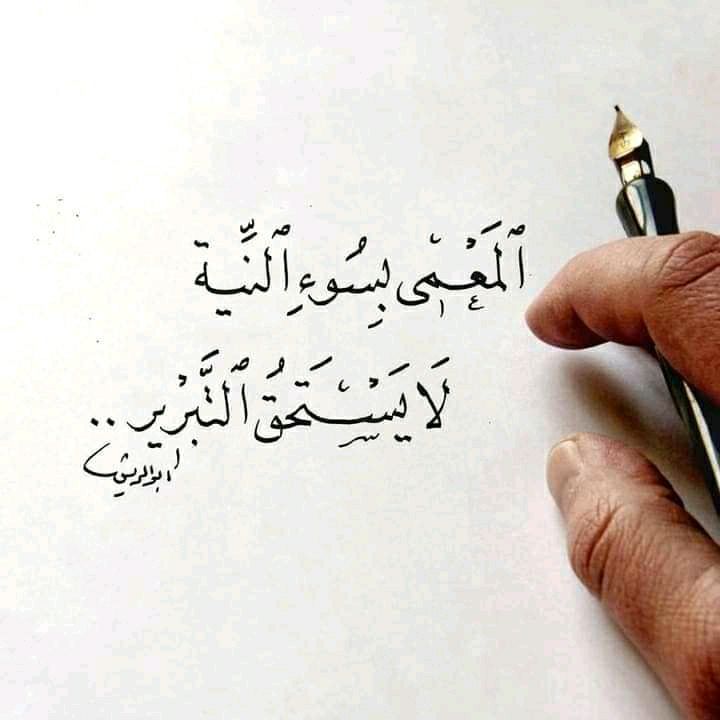 ٱلمَعْمىٰ بِسُوءِ ٱلنِّية
لَا يَسْتَحقُ ٱلتَّبْرْير ..
ابوالريش